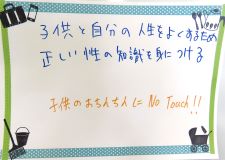 子供と自分の人生をよくするため
正しい性の知識を身につける
子供のおちんちんに No Touch!!